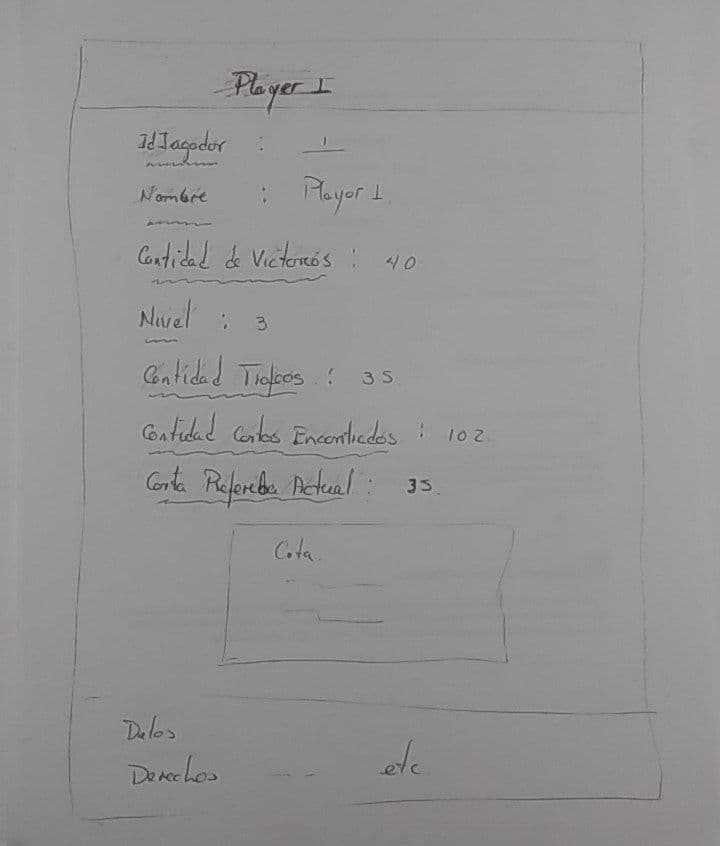 Player 1
IdJagador : 1
Nombre : Player 1
Cantidad de Victorias : 40
Nivel : 3
Cantidad Trofeos : 35
Cantidad Cartas Encontradas : 102
Carta Preferida Actual : 35
Carta
Datos
Derechos -- -- etc